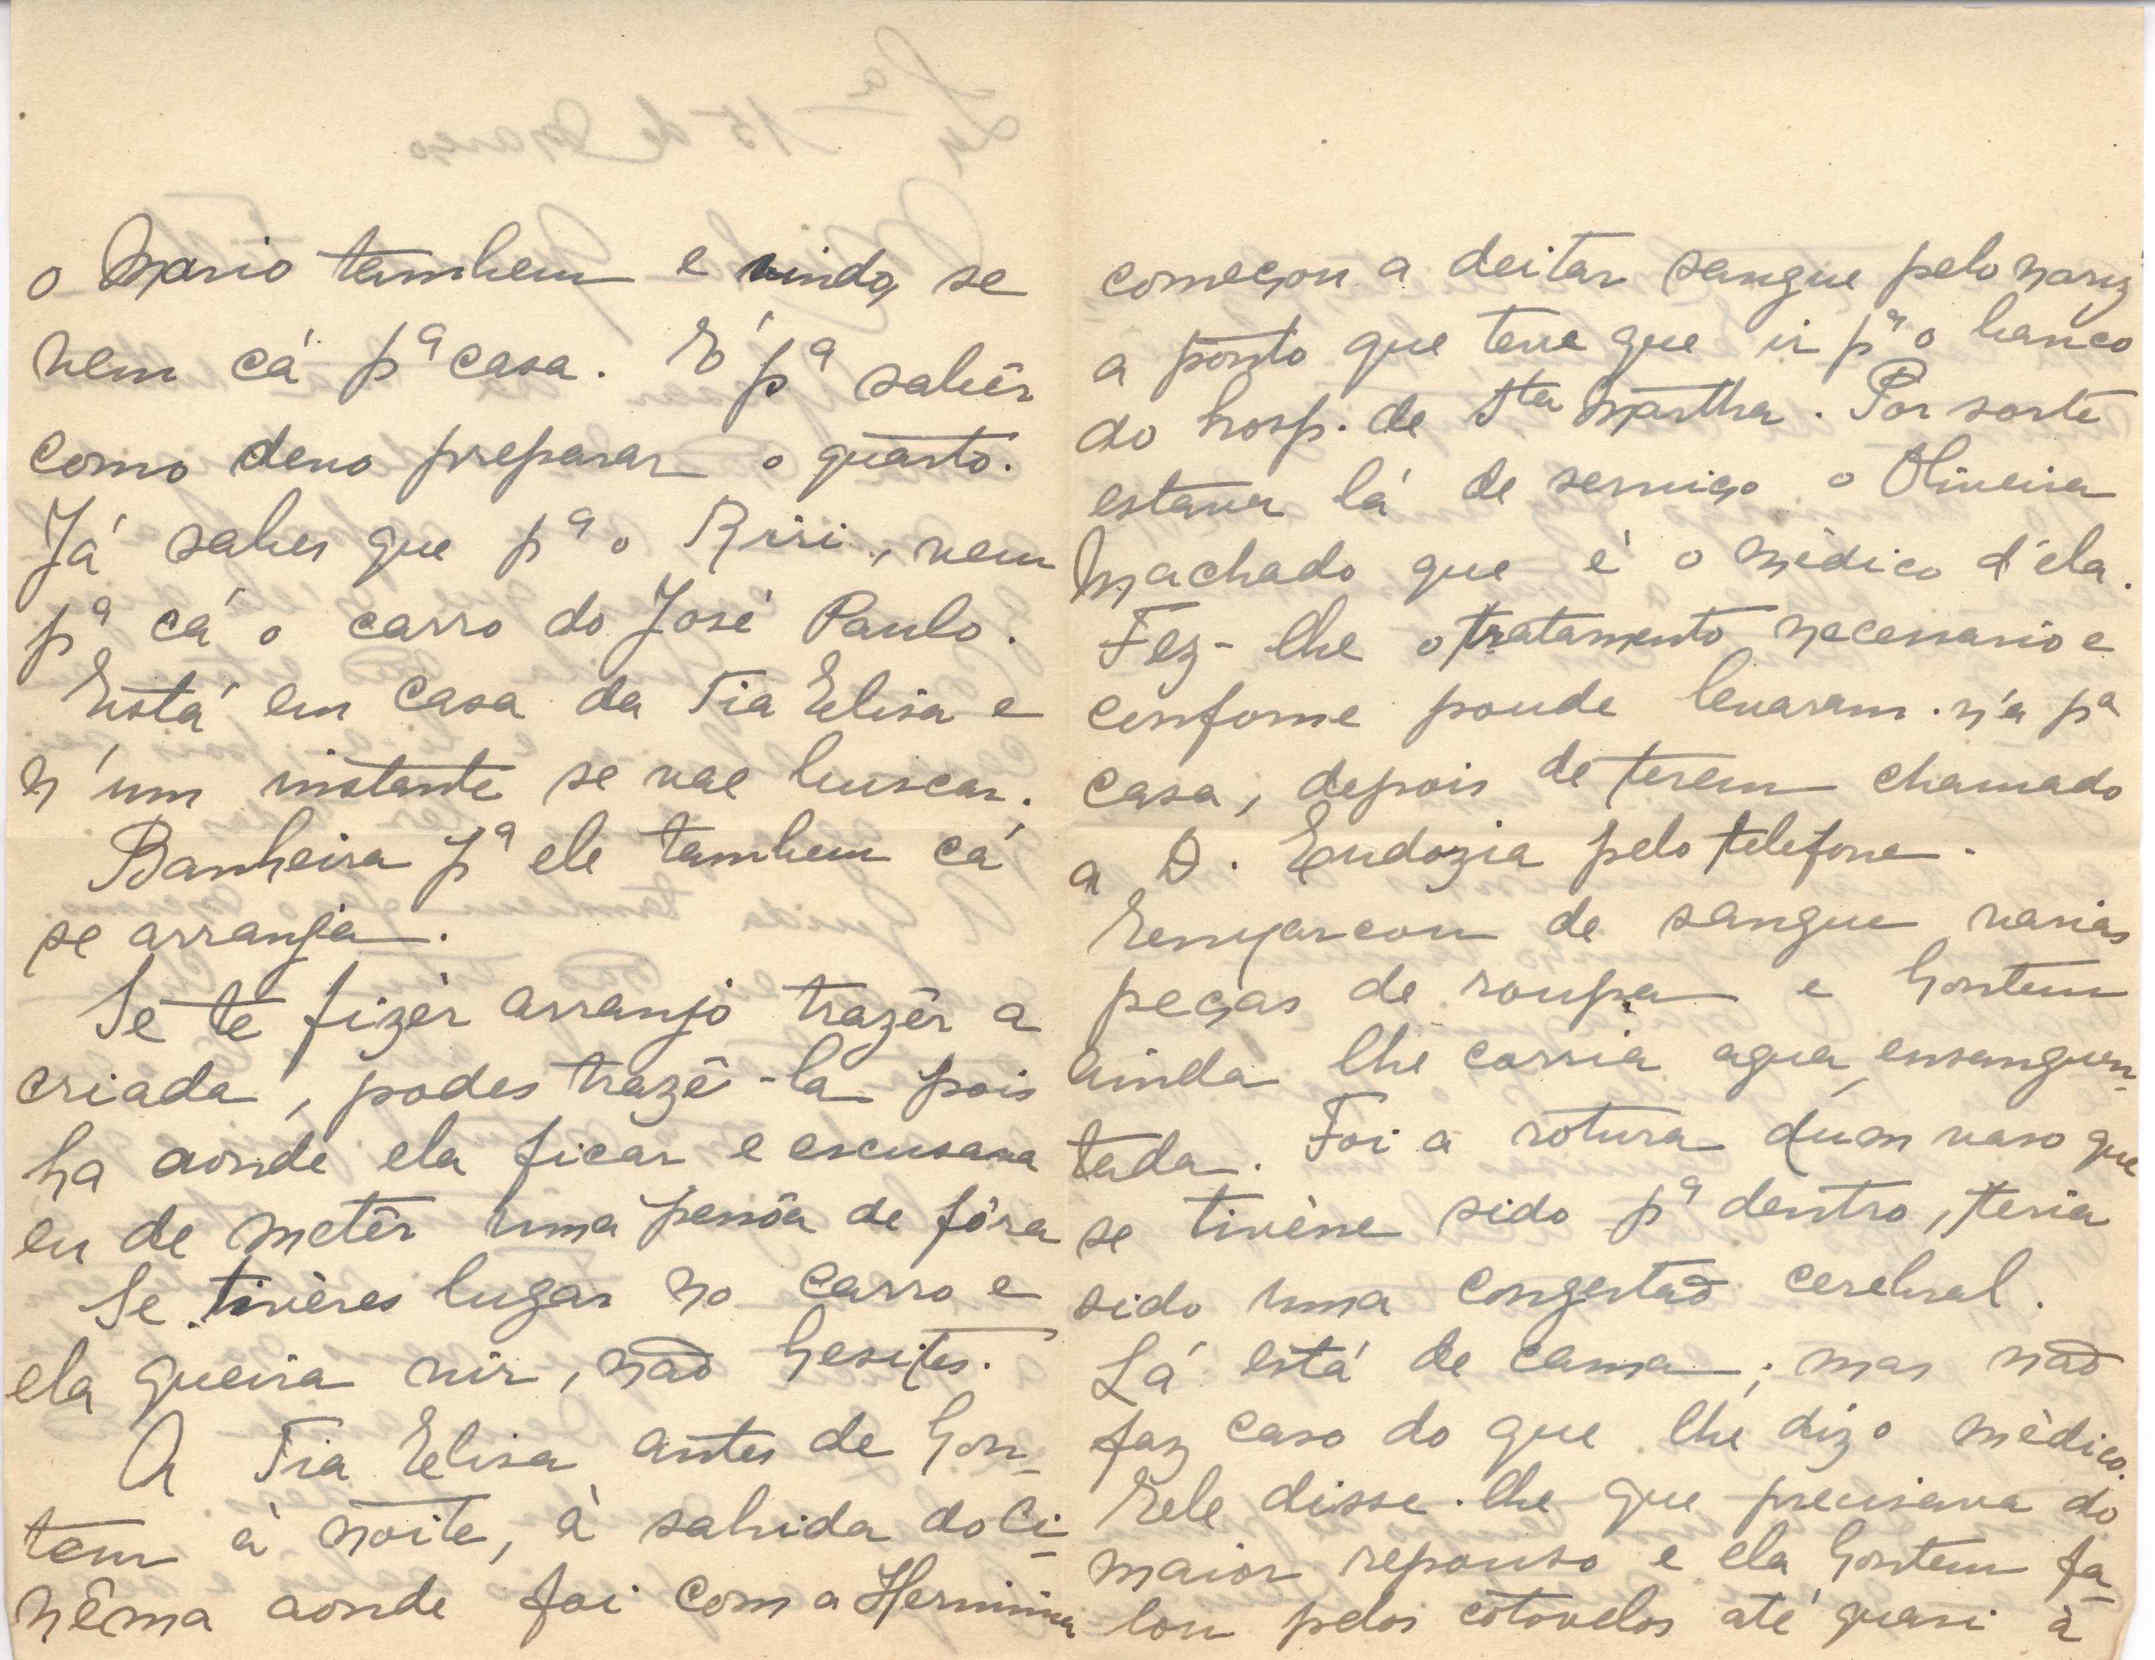 o Mario tambem e vindo, se
vem cá pª casa. É pª sabêr
como devo preparar o quarto.
Já sabes que pª o Riri, vem
pª cá o carro do José Paulo.
Está em casa da Tia Elisa e
n'um instante se vae buscar.
Banheira pª ele tambem cá
se arranja.
Se te fizér arranjo trazêr a
criada, podes trazê-la pois
ha aonde ela ficar e escusava
eu de metêr uma pessôa de fóra
Se tivéres lugar no carro e
ela queira vir, não hesites.
A Tia Elisa antes de hon-
tem à noite, à sahida do Ci-
nêma aonde foi com a Herminia
começou a deitar sangue pelo nariz
a ponto que teve que ir pª o banco
do hosp. de Sta Martha. Por sorte
estava lá de serviço o Oliveira
Machado que é o médico d'éla.
Fez-lhe o tratamento necessario e
conforme poude levaram-n'a pª
casa, depois de terem chamado
a D. Eudozia pelo telefone.
Ensyarcou de sangue varias
peças de roupa e hontem
ainda lhe corria agua ensanguen-
tada. Foi a rotura dum vaso que
se tivésse sido pª dentro, teria
sido uma congestão cerebral.
Lá está de cama; mas não
faz caso do que lhe diz o médico.
Ele disse-lhe que precisava do
maior repouso e ela hontem fa-
lou pelos cotovelos até quasi à